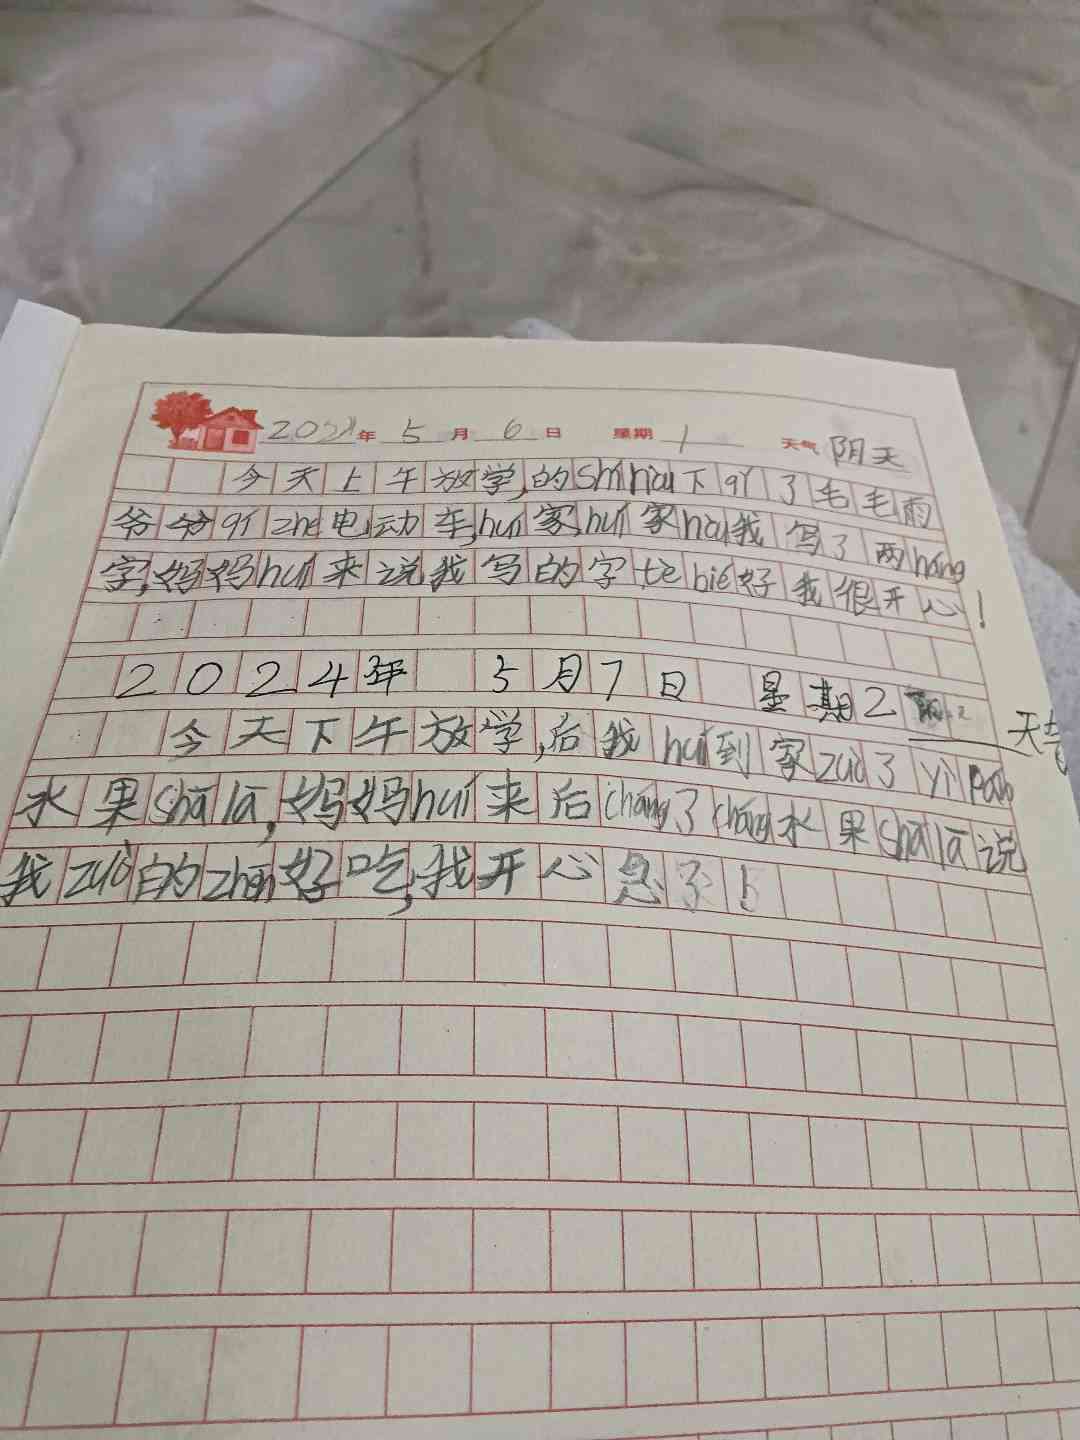 2024年 5 月 6 日 星期 1 天气 阴天
今天上午放学,的shí hòu下qǐ了毛毛雨
爷爷qí zhe电动车,huí家,huí家hòu我写了两háng
字,妈妈huí来说我写的字tè bié好我很开心!
2024年 5月7日 星期2 天气
今天下午放学,后我huí到家zuò了yì pán
水果shā lā,妈妈huí来后cháng了cháng水果shā lā说
我zuò的zhēn好吃,我开心